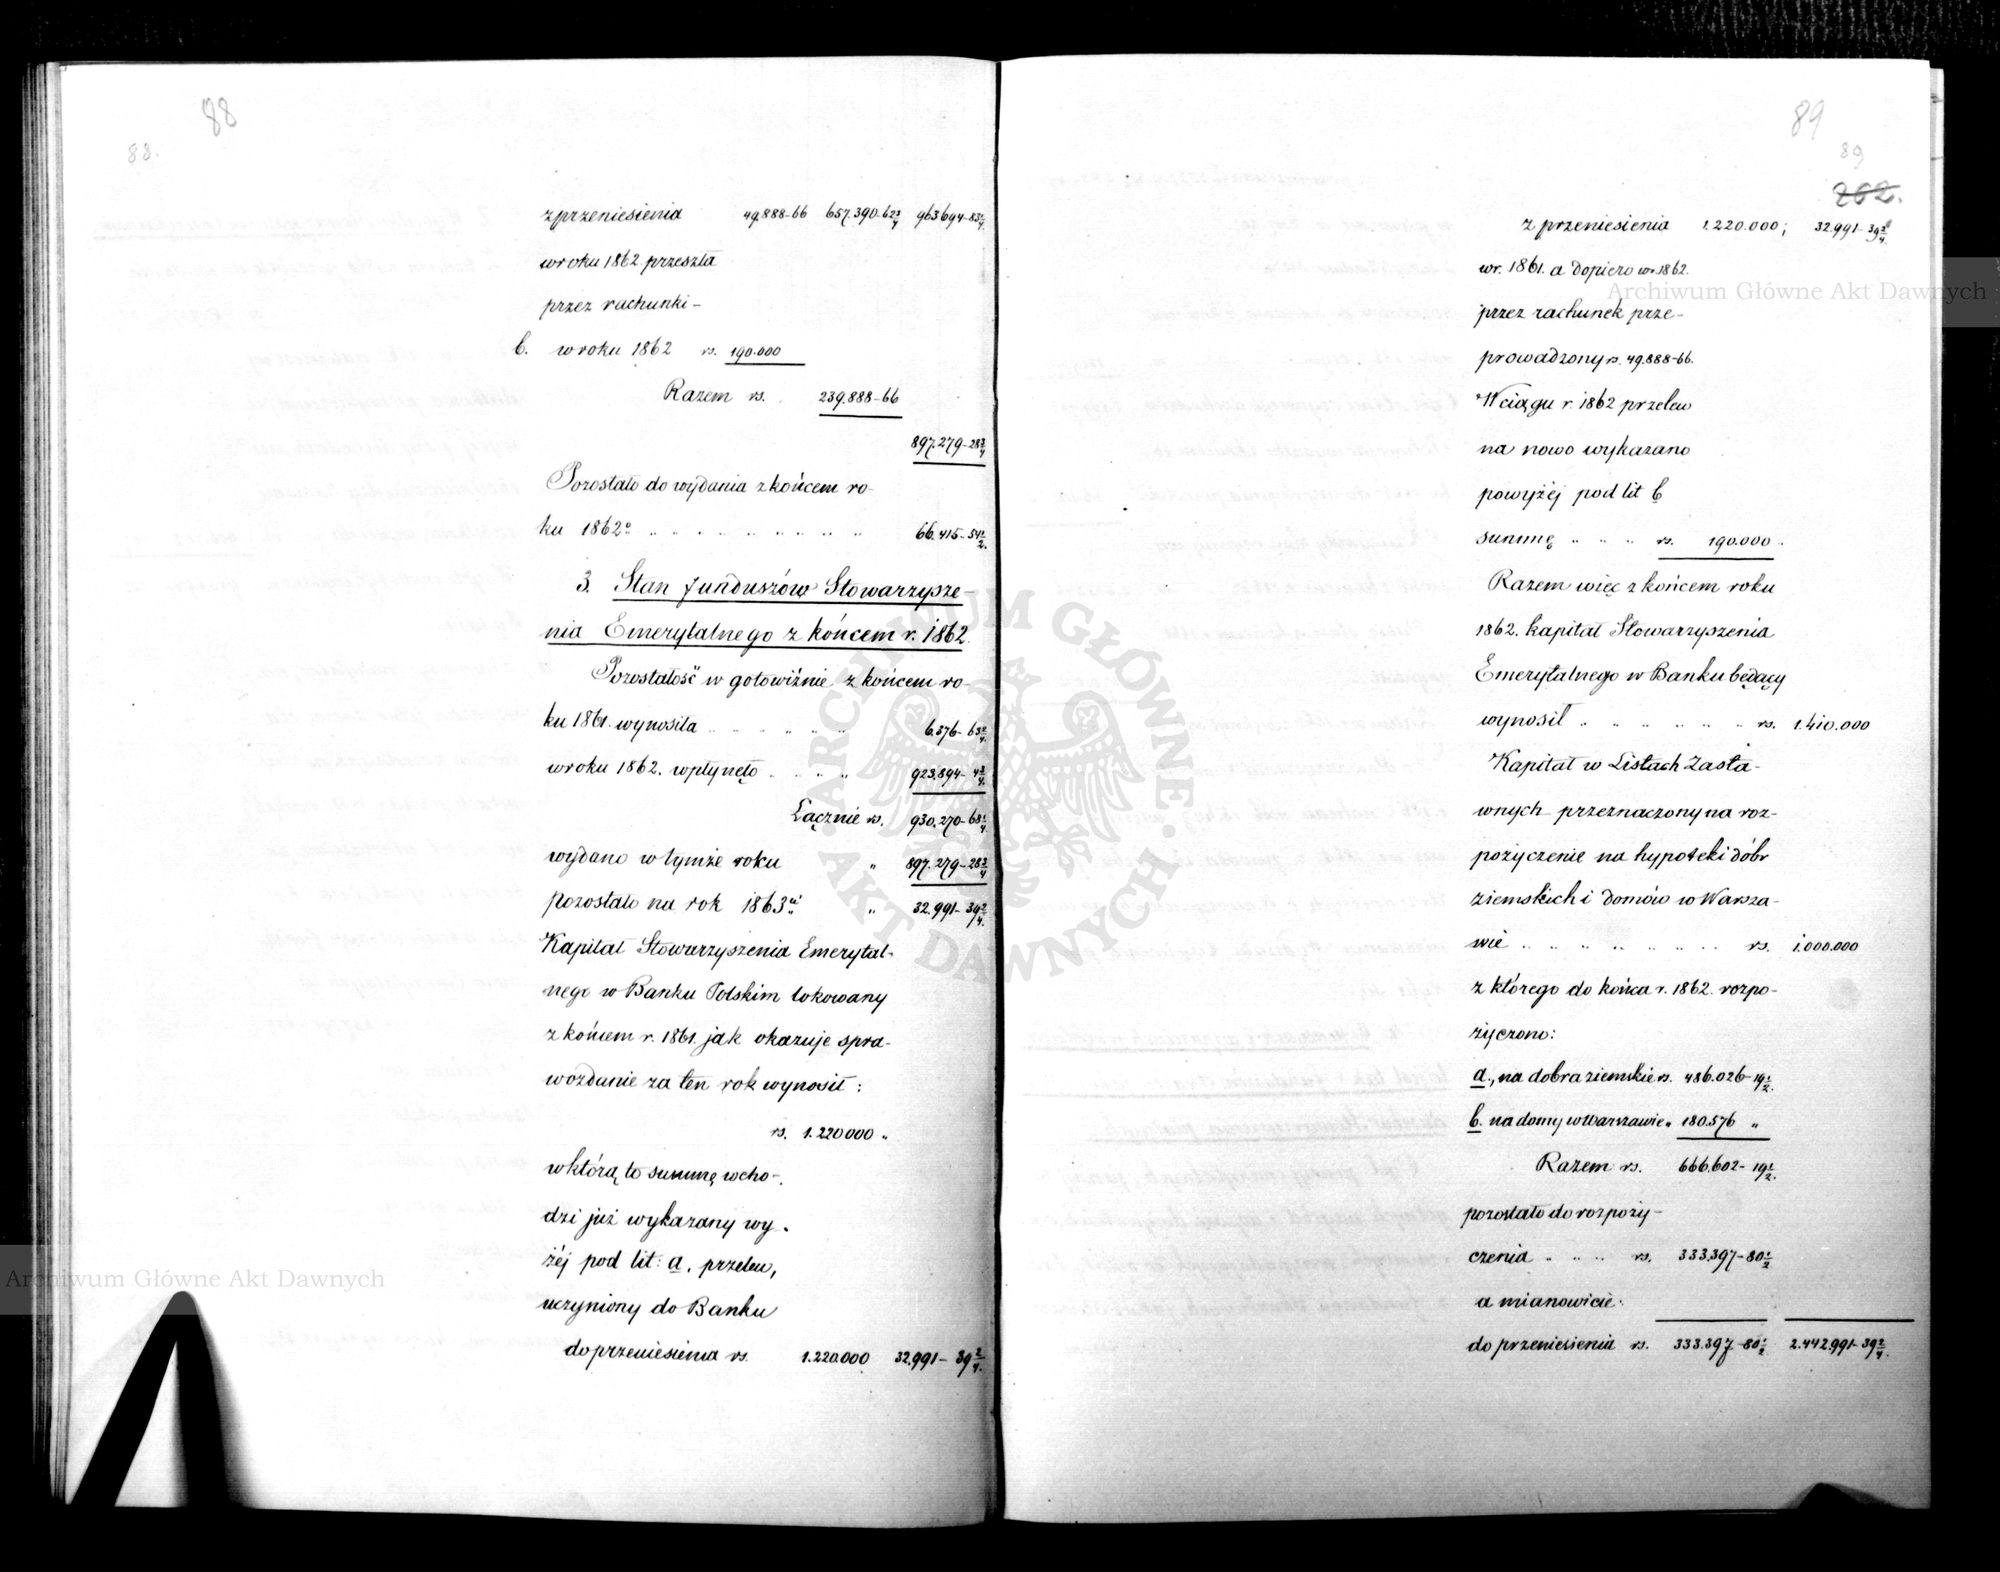 88
88.
z przeniesienia 49.888-66 657.390-62 3/4 963.694-83 1/4
w roku 1862 przeszła
przez rachunki –
b. w roku 1862 rs. 190.000
Razem rs. 239.888-66
897.279-28 3/4
Pozostało do wydania z końcem ro-
ku 1862o „ „ „ „ „ „ „ „ 66.415-54 1/2.
3. Stan funduszów Stowarzysze-
nia Emerytalnego z końcem r. 1862.
Pozostałość w gotowiźnie z końcem ro-
ku 1861. wynosiła „ „ „ „ „ 6.376-63 2/4.
w roku 1862. wpłynęło „ „ „ „ 923.894-4 3/4.
Łącznie rs. 930.270-68 1/4
wydano w tymże roku „ 897.279-28 3/4
pozostało na rok 1863ci „ 32.991-39 2/4.
Kapitał Stowarzyszenia Emerytal-
nego w Banku Polskim lokowany
z końcem r. 1861. jak okazuje spra-
wozdanie za ten rok wynosił:
rs. 1.220000 „
w którą to summę wcho-
dzi już wykazany wy-
żéj pod lit: a. przelew,
uczyniony do Banku
do przeniesienia rs. 1.220.000 32.991-39 2/4.
89
89
262.
z przeniesienia 1.220.000; 32.991-39 2/4.
w r. 1861. a dopiero w r. 1862.
przez rachunek prze-
prowadzony rs. 49.888-66.
W ciągu r. 1862 przelew
na nowo wykazano
powyżéj pod lit b
summę „ „ „ rs. 190.000 „
Razem więc z końcem roku
1862. kapitał Stowarzyszenia
Emerytalnego w Banku będący
wynosił „ „ „ „ „ „ rs. 1.410.000
Kapitał w Listach Zasta-
wnych przeznaczony na roz-
pożyczenie na hypoteki dóbr
ziemskich i domów w Warsza-
wie „ „ „ „ „ „ „ rs. 1.000.000
z którego do końca r. 1862. rozpo-
życzono:
a., na dobra ziemskie rs. 486.026-19 1/2.
b. na domy w Warszawie „ 180.576 „
Razem rs. 666.602-19 1/2.
pozostało do rozpoży-
czenia „ „ „ rs. 333.397-80 1/2
a mianowicie:
do przeniesienia rs. 333.397-80 1/2 2.442.991-39 2/4.
Archiwum Główne Akt Dawnych
Archiwum Główne Akt Dawnych
ARCHIWUM GŁÓWNE · AKT DAWNYCH ·